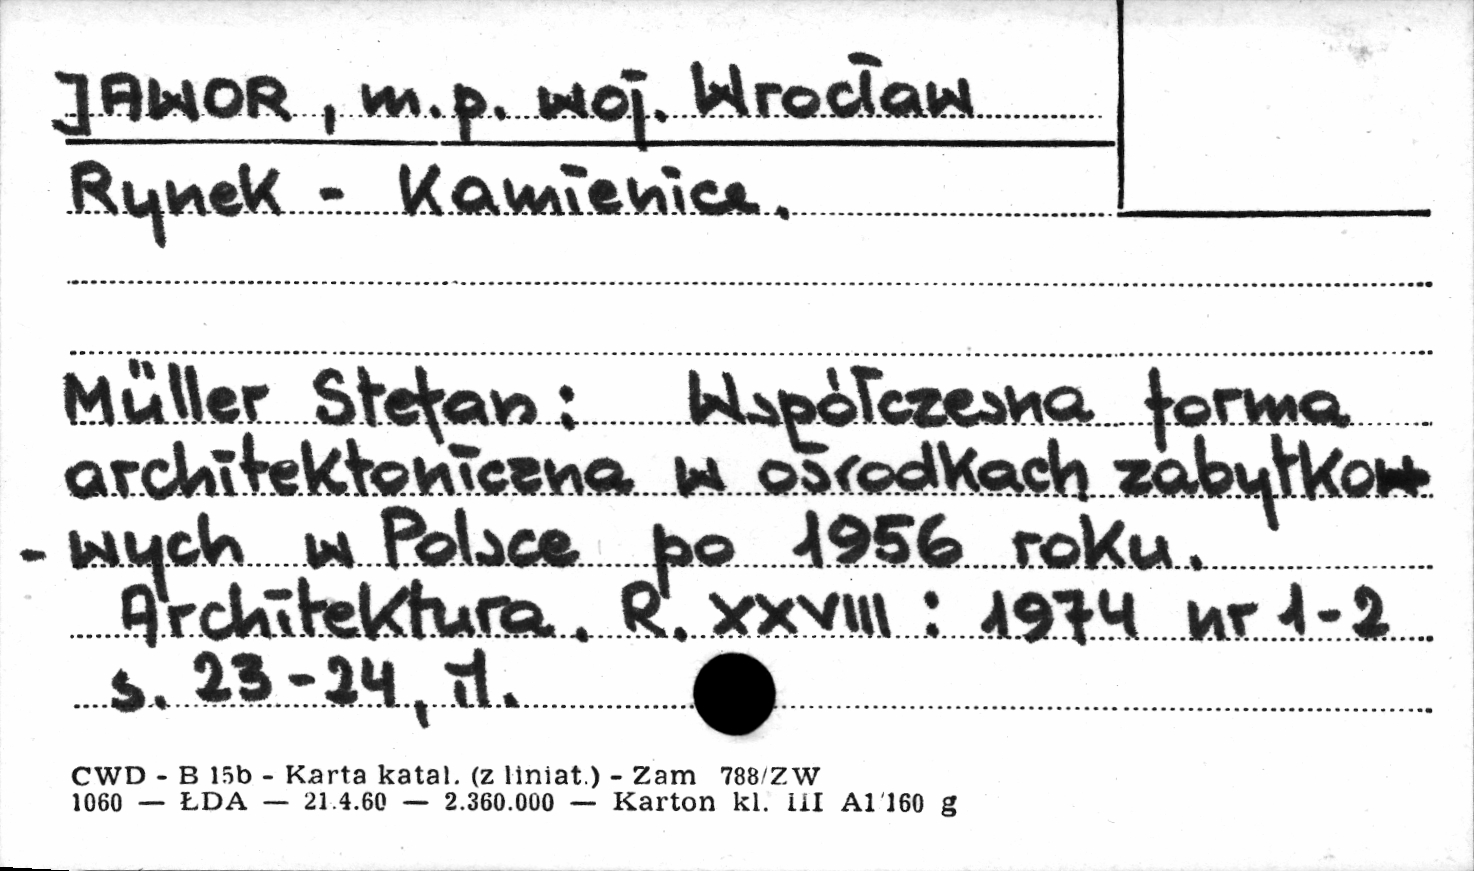 JAWOR, m.p. woj. Wrocław
Rynek - Kamienice.
Müller Stefan: Współczesna forma
architektoniczna w ośrodkach zabytko
- wych w Polsce po 1956 roku.
Architektura. R. XXVIII : 1974 nr 1-2
s. 23-24, il.
CWD - B 15b - Karta katal. (z liniat.) - Zam 788/ZW
1060 — ŁDA — 21.4.60 — 2.360.000 — Karton kl. III A1 160 g